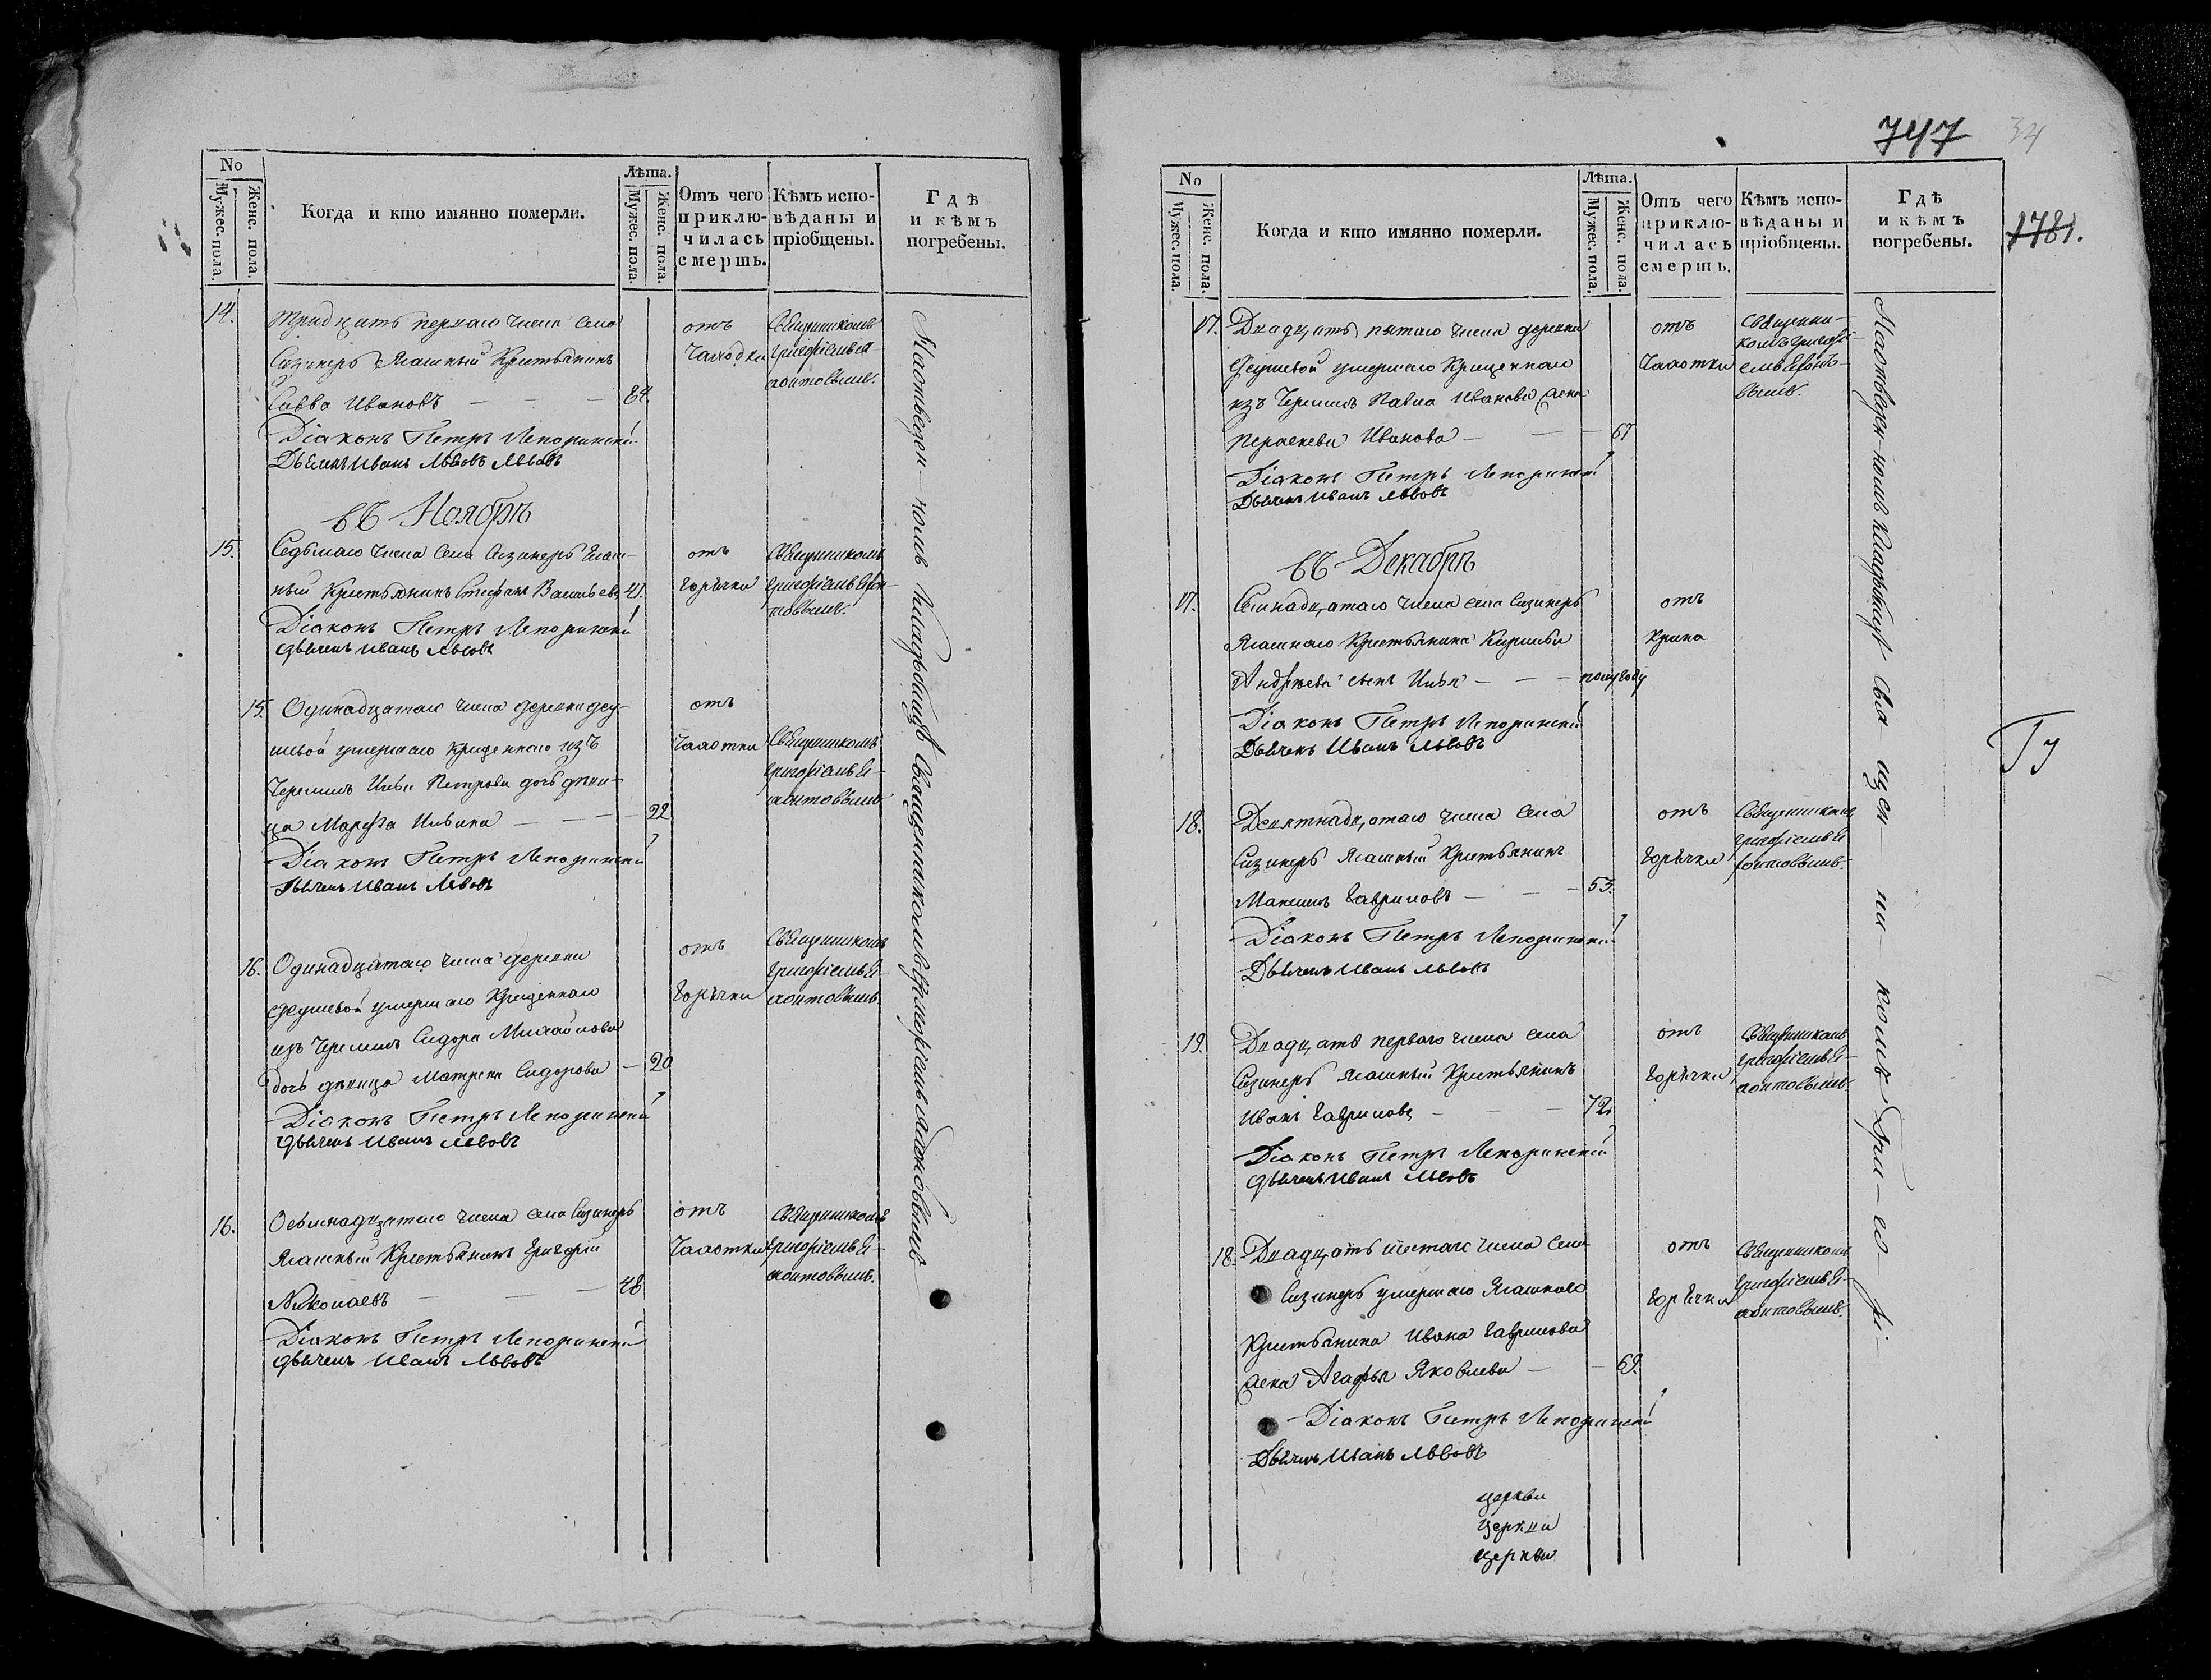 No
Мужес. пола.
Женс. пола.
Когда и кто имянно померли.
Лѣта.
Мужес. пола.
Женс. пола.
Отъ чего
приклю-
чилась
смерть.
Кѣмъ испо-
вѣданы и
пріобщены.
Гдѣ
и кѣмъ
погребены.
14.
Тридцать перваго числа села
Сизинеръ Ясашный Крестьянинъ
Савва Ивановъ — — — 84.
Діаконъ Петръ Лепоринскій
Дьячекъ Иванъ Львовъ
отъ
чахотки
Священникомъ
Григоріемъ
въ Ноябрѣ
15.
Седьмаго числа села Сизинеръ Ясаш-
ный Крестьянинъ Стефанъ Васильевъ 41.
Діаконъ Петръ Лепоринскій
дьячекъ Иванъ Львовъ
отъ
горячки
Священникомъ
Григоріемъ
15.
Одинадцатаго числа деревни
умершаго крещеннаго изъ
Черемисъ Ильи Петрова дочь дѣви-
ца Марѳа Ильина — — — 22
Діаконъ Петръ Лепоринскій
Дьячекъ Иванъ Львовъ
отъ
чахотки
Священникомъ
Григоріемъ
16.
Одинадцатаго числа деревни
умершаго Крещеннаго
изъ Черемисъ Сидора Михайлова
дочь дѣвица Матрена Сидорова — 20
Діаконъ Петръ Лепоринскій
дьячекъ Иванъ Львовъ
отъ
горячки
Священникомъ
Григоріемъ
16.
Осьмнадцатаго числа села Сизинеръ
Ясашный Крестьянинъ Григорій
Николаевъ — — — 48
Діаконъ Петръ Лепоринскій
дьячекъ Иванъ Львовъ
отъ
чахотки
Священникомъ
Григоріемъ
кладбищѣ Священникомъ Григоріемъ
747
34
1781.
No
Мужес. пола.
Женс. пола.
Когда и кто имянно померли.
Лѣта.
Мужес. пола.
Женс. пола.
Отъ чего
приклю-
чилась
смерть.
Кѣмъ испо-
вѣданы и
пріобщены.
Гдѣ
и кѣмъ
погребены.
17.
Двадцать пятаго числа деревни
умершаго Крещеннаго
изъ Черемисъ Павла Иванова жена
Парасковья Иванова — — — 67
Діаконъ Петръ Лепоринскій
Дьячекъ Иванъ Львовъ
отъ
чахотки
Священни-
комъ Григорі-
емъ
въ Декабрѣ
17.
числа села Сизинеръ
Ясашнаго Крестьянина Кирилы
Андреева сынъ Илья — — — полугоду
Діаконъ Петръ Лепоринскій
Дьячекъ Иванъ Львовъ
отъ
крика
18.
Девятнадцатаго числа села
Сизинеръ Ясашный Крестьянинъ
Максимъ Гавриловъ — — — 53.
Діаконъ Петръ Лепоринскій
Дьячекъ Иванъ Львовъ
отъ
горячки
Священникомъ
Григоріемъ
19.
Двадцать перваго числа села
Сизинеръ Ясашный Крестьянинъ
Иванъ Гавриловъ — — — 72.
Діаконъ Петръ Лепоринскій
дьячекъ Иванъ Львовъ
отъ
горячки
Священникомъ
Григоріемъ
18.
Двадцать шестаго числа села
Сизинеръ умершаго Ясашнаго
Крестьянина Ивана Гаврилова
жена Агафья Яковлева — — 69.
Діаконъ Петръ Лепоринскій
Дьячекъ Иванъ Львовъ
отъ
горячки
Священникомъ
Григоріемъ
церкви
церкви
церкви
кладбищѣ Свя щен ни комъ Гри го рі